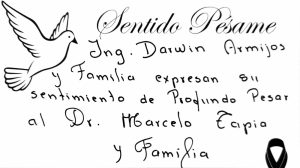 Sentido Pésame
Ing. Darwin Armijos
y Familia expresan su
sentimiento de Profundo Pesar
al Dr. Marcelo Tapia
y Familia